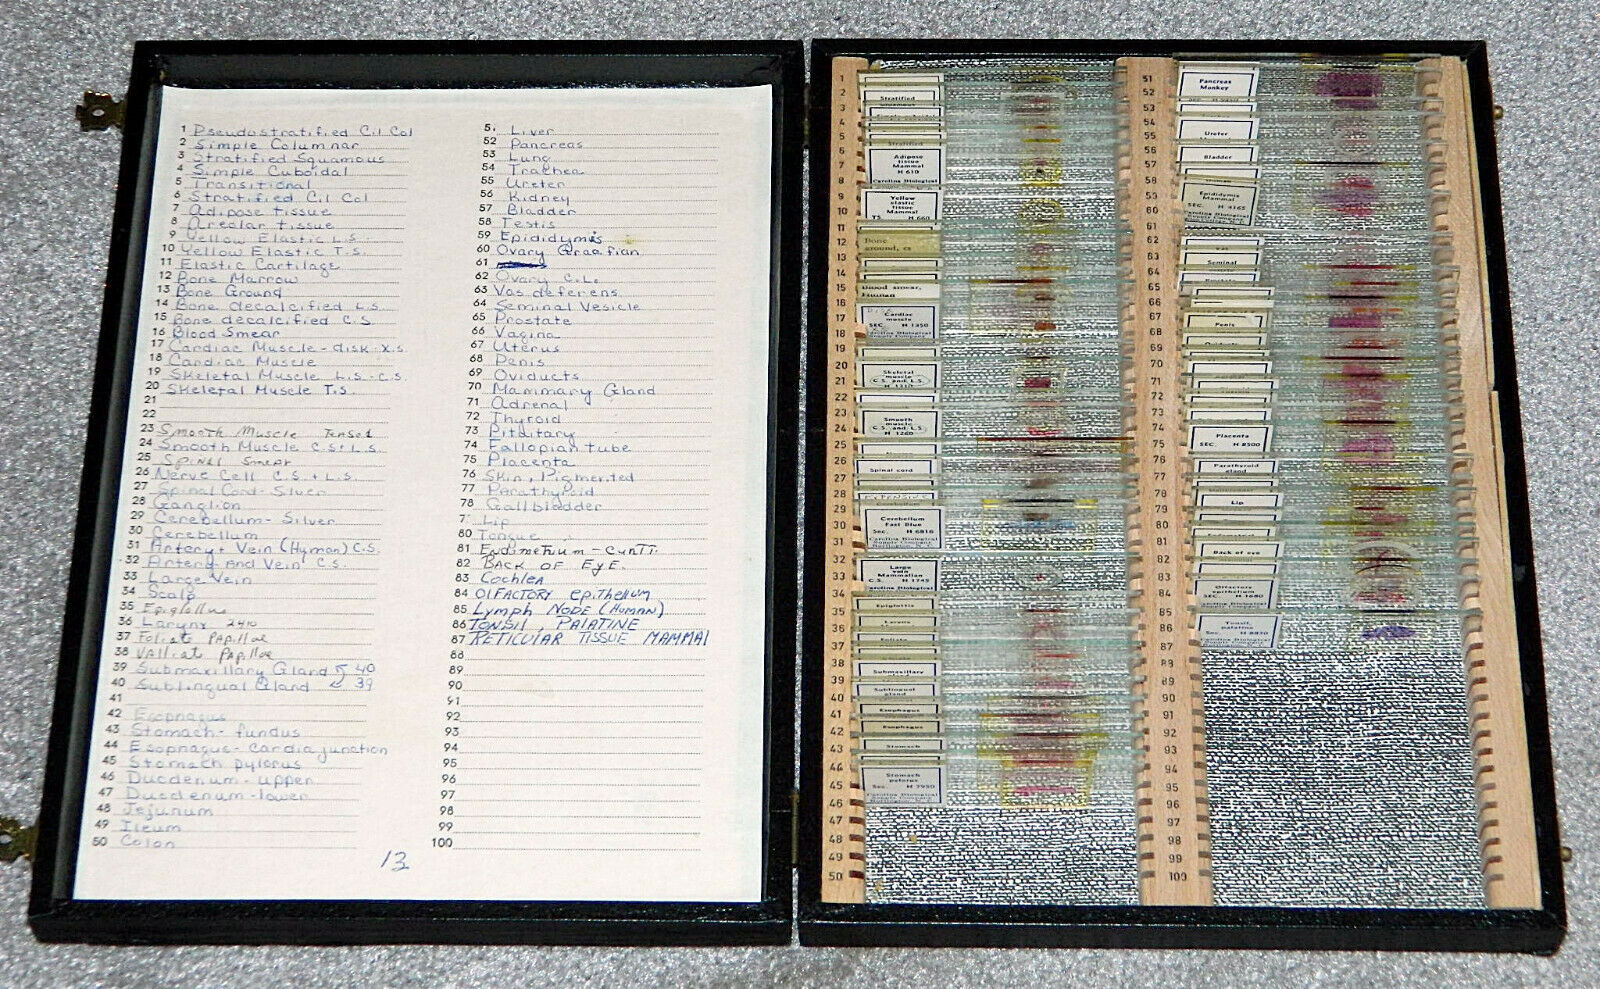 1 Pseudostratified Cil Col
2 Simple Columnar
3 Stratified Squamous
4 Simple Cuboidal
5 Transitional
6 Stratified Cil Col
7 Adipose tissue
8 Areolar tissue
9 Yellow Elastic L.S.
10 Yellow Elastic T.S.
11 Elastic Cartilage
12 Bone Marrow
13 Bone Ground
14 Bone decalcified L.S.
15 Bone decalcified C.S.
16 Blood Smear
17 Cardiac Muscle - disk - X.S.
18 Cardiac Muscle
19 Skeletal Muscle L.S.-C.S.
20 Skeletal Muscle T.S.
21
22
23 Smooth Muscle Teased
24 Smooth Muscle C.S+L.S.
25 Spinal Smear
26 Nerve Cell C.S.+L.S.
27 Spinal Cord - Silver
28 Ganglion
29 Cerebellum - Silver
30 Cerebellum
31 Artery + Vein (Human) C.S.
32 Artery and Vein C.S.
33 Large Vein
34 Scalp
35 Epiglottus
36 Larynx 2410
37 Foliate Papillae
38 Valliate Papillae
39 Submaxillary Gland 40
40 Sublingual Gland 39
41
42 Esophagus
43 Stomach - fundus
44 Esophagus - Cardia junction
45 Stomach pylorus
46 Duodenum - upper
47 Duodenum - lower
48 Jejunum
49 Ileum
50 Colon
13
51 Liver
52 Pancreas
53 Lung
54 Trachea
55 Ureter
56 Kidney
57 Bladder
58 Testis
59 Epididymis
60 Ovary Graafian
61
62 Ovary C.L.
63 Vas deferens
64 Seminal Vesicle
65 Prostate
66 Vagina
67 Uterus
68 Penis
69 Oviducts
70 Mammary Gland
71 Adrenal
72 Thyroid
73 Pituitary
74 Fallopian tube
75 Placenta
76 Skin, Pigmented
77 Parathyroid
78 Gallbladder
7 Lip
80 Tongue
81 Endimetium - Cunti.
82 BACK OF EyE
83 Cochlea
84 OLFACTORY epithelium
85 Lymph NODE (HUMAN)
86 TONSIL, PALATINE
87 RETICULAR TISSUE MAMMAL
88
89
90
91
92
93
94
95
96
97
98
99
100
Stratified
Adipose
tissue
Mammal
H 610
Carolina Biological
Yellow
elastic
tissue
Mammal
T.S. H 660
Bone
ground, cs
Blood smear,
Human
Cardiac
muscle
SEC. H 1350
Carolina Biological
Supply Company
Skeletal
muscle
C.S. and L.S.
Smooth
muscle
C.S. and L.S.
H 1260
Spinal cord
Cerebellum
Fast Blue
Sec. H 6816
Carolina Biological
Supply Company
Large
vein
Mammalian
C.S. H 1745
Carolina Biological
Epiglottis
Larynx
Foliate
Submaxillary
Sublingual
gland
Esophagus
Esophagus
Stomach
Stomach
pylorus
SEC. H 7950
Carolina Biological
Pancreas
Monkey
Ureter
Bladder
Epididymis
Mammal
SEC. H 4165
Carolina Biological
Supply Company
Seminal
Penis
Oviducts
Placenta
SEC. H 8500
Parathyroid
gland
Lip
Back of eye
Olfactory
epithelium
SEC. H 1680
Carolina Biological
Tonsil,
palatine
Sec. H 8820
Carolina Biological
Supply Company